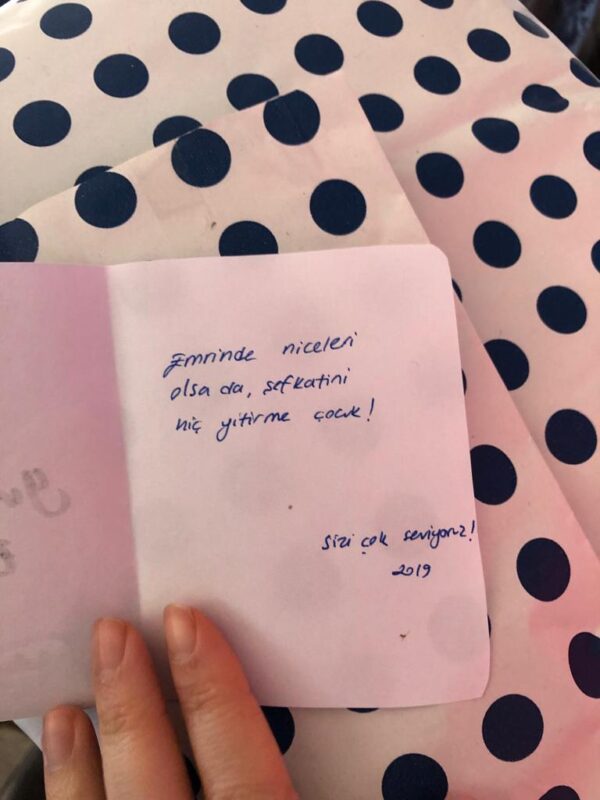 Emrinde niceleri
olsa da, şefkatini
hiç yitirme çocuk!
sizi çok seviyoruz!
2019